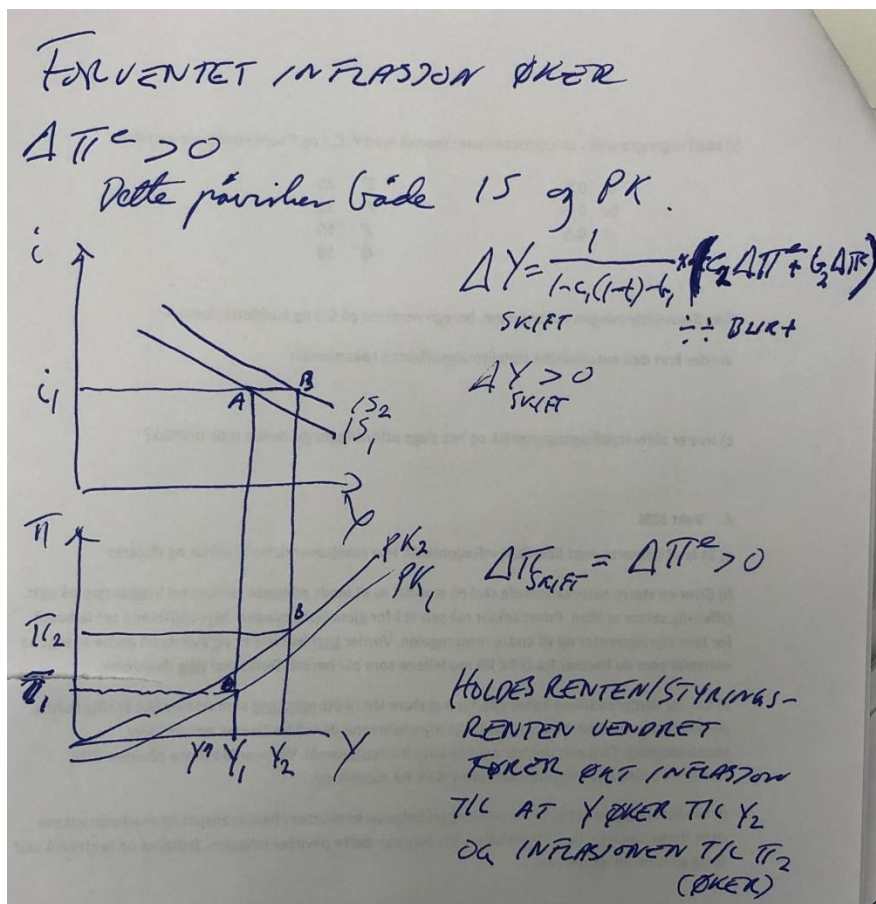 FORVENTET INFLASJON ØKER
Δπᵉ > 0
Dette påvirker både IS og PK.
ΔY = 1 / (1-c₁(1-t)-b₁) × (c₂Δπᵉ + b₂Δπᵉ)
SKIFT
ΔY > 0
SKIFT
i
i₁
A
B
IS₂
IS₁
Y
π
PK₂
PK₁
π₂
B
π₁
Yⁿ Y₁ Y₂ Y
Δπ = Δπᵉ > 0
SKIFT
HOLDES RENTEN/STYRINGS-
RENTEN UENDRET
FØRER ØKT INFLASJON
TIL AT Y ØKER TIL Y₂
OG INFLASJONEN TIL π₂
(ØKER)